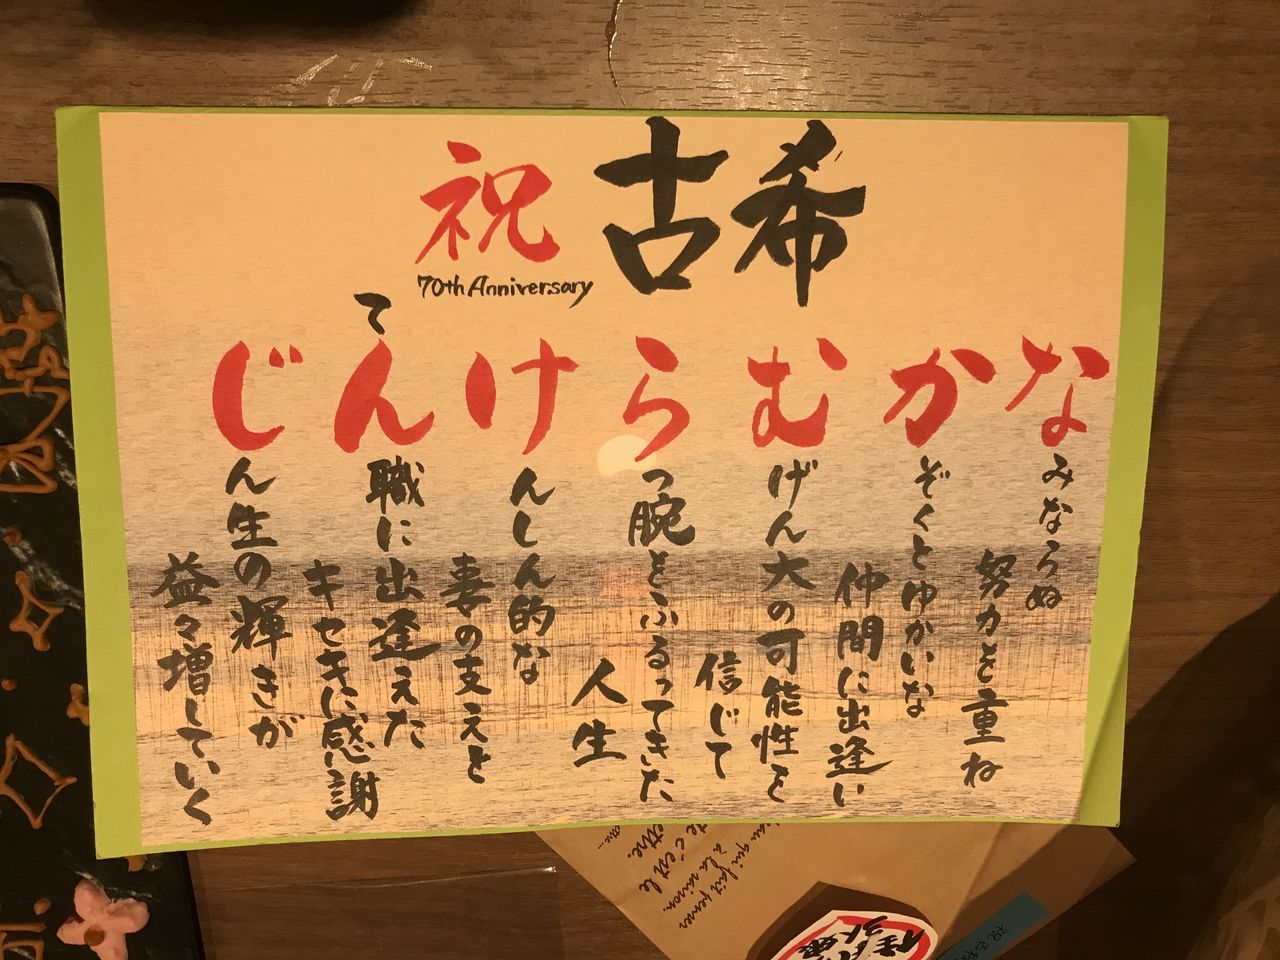 祝 古希
70th Anniversary
なみならぬ
努力を重ね
かぞくとゆかいな
仲間に出逢い
むげん大の可能性を
信じて
らっ腕をふるってきた
人生
けんしん的な
妻の支えと
てん職に出逢えた
キセキに感謝
じん生の輝きが
益々増していく
qui fait penser
c'est le